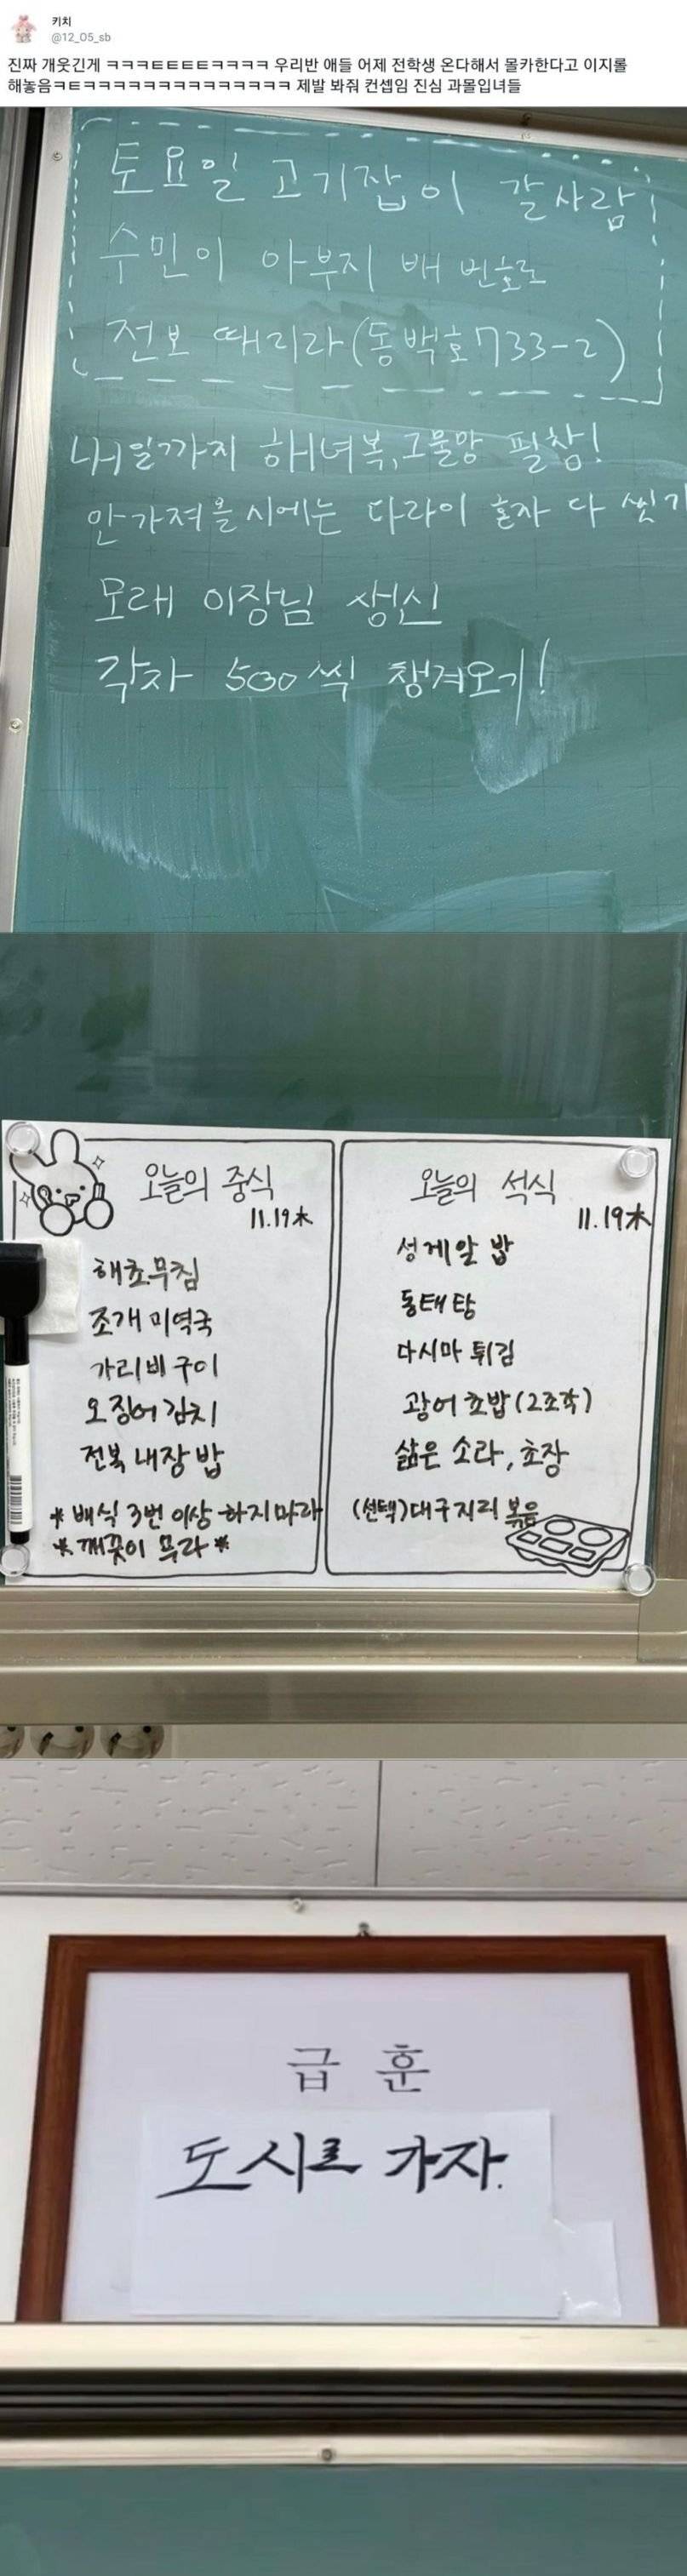 키치
@12_05_sb
진짜 개웃긴게 ㅋㅋㅋㅌㅌㅌㅌㅋㅋㅋㅋ 우리반 애들 어제 전학생 온다해서 몰카한다고 이지롤
해놓음ㅋㅌㅋㅋㅋㅋㅋㅋㅋㅋㅋㅋㅋㅋㅋㅋ 제발 봐줘 컨셉임 진심 과몰입녀들
토요일 고기잡이 갈사람
수민이 아부지 배 번호로
전보 때리라(동백호733-2)
내일까지 해녀복,그물망 필참!
안가져올시에는 다라이 혼자 다 씻기
모래 이장님 생신
각자 500씩 챙겨오기!
오늘의 중식
11.19木
해초무침
조개미역국
가리비구이
오징어김치
전복내장밥
*배식 3번 이상 하지마라
*깨끗이 무라*
오늘의 석식
11.19木
성게알 밥
동태탕
다시마 튀김
광어초밥(2조각)
삶은 소라, 초장
(선택)대구지리 볶음
급 훈
도시로 가자.